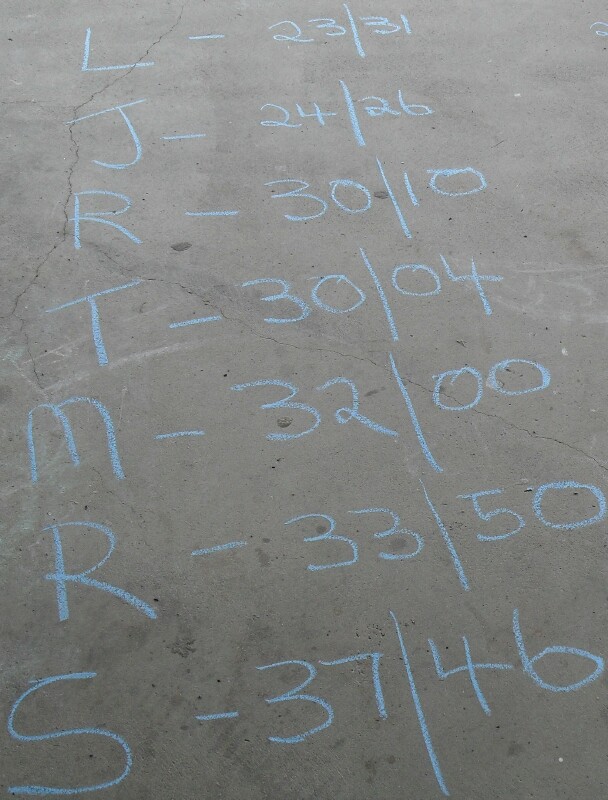 L - 23/31
J - 24/26
R - 30/10
T - 30/04
M - 32/00
R - 33/50
S - 37/46